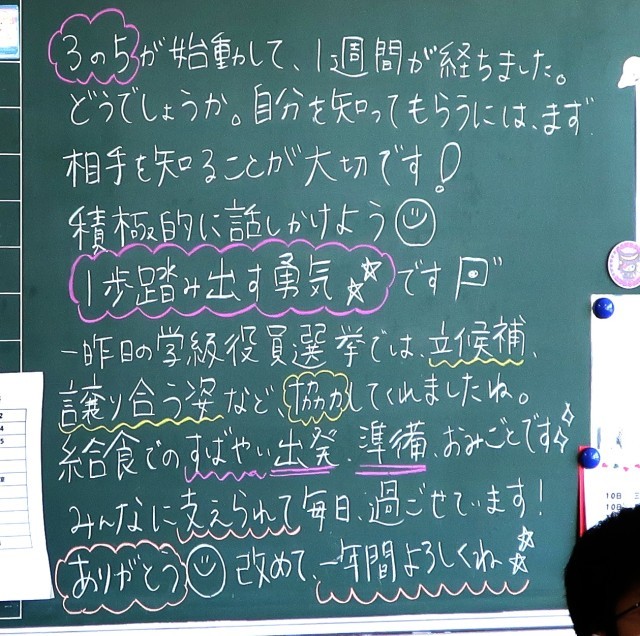 3の5が始動して、1週間が経ちました。
どうでしょうか。自分を知ってもらうには、まず
相手を知ることが大切です!
積極的に話しかけよう
1歩踏み出す勇気 です
一昨日の学級役員選挙では、立候補、
譲り合う姿など、協力してくれましたね。
給食でのすばやい出発、準備、おみごとです
みんなに支えられて毎日、過ごせています!
ありがとう 改めて、一年間よろしくね
10日
10日